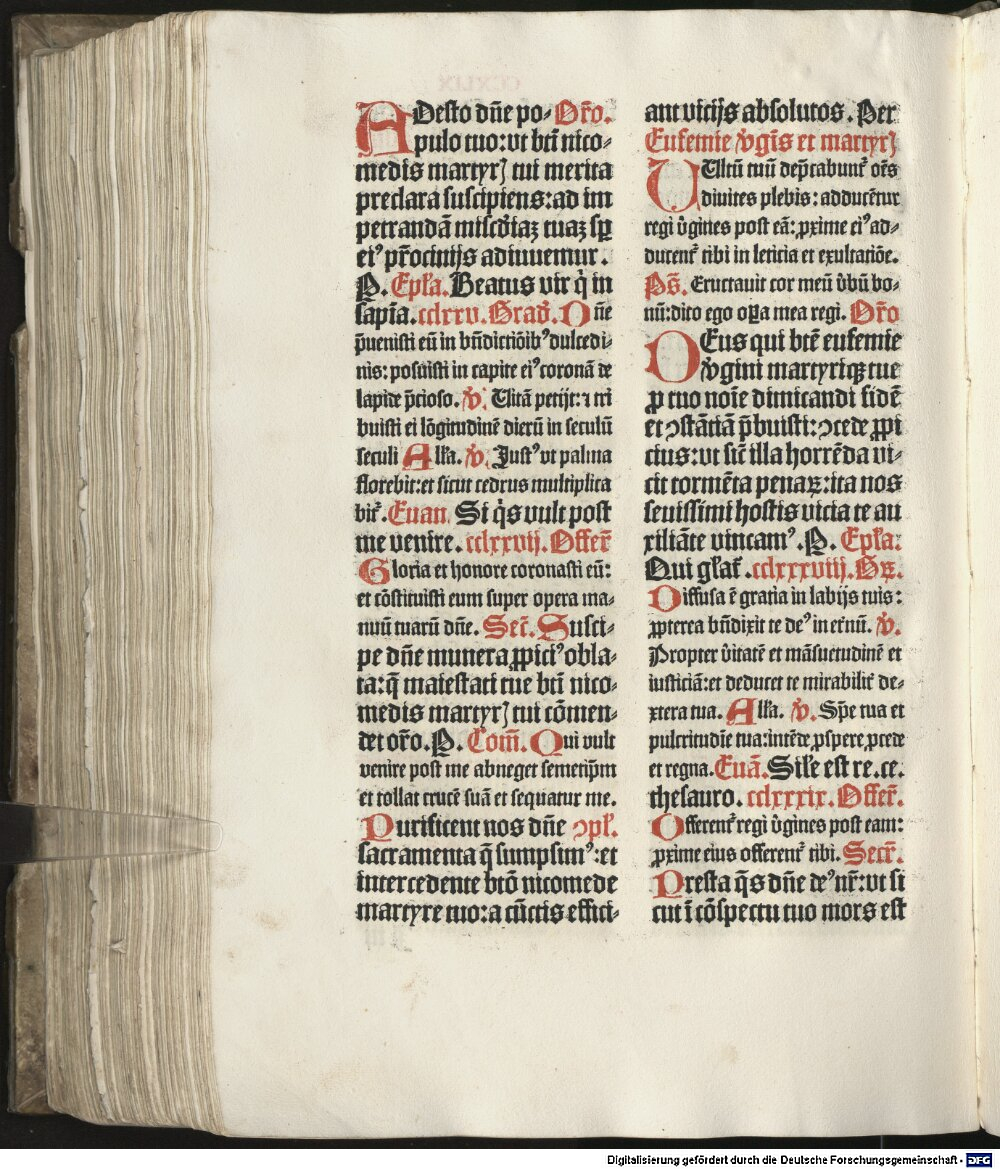 ADesto dñe po⸗ Oŕo.
pulo tuo: vt bt̃i nico⸗
medis martyrꝭ tui merita
preclara suscipiens: ad im
petrandã misc̃diaꝫ tuaꝫ sꝑ
eiꝰ pr̃ocinijs adiuuemur.
P. Epl̃a. Beatus vir q̇ in
sapĩa. cclxxv. Grad̃. Dñe
p̃uenisti eũ in bñdictiõibꝰ dulcedi⸗
nis: posuisti in capite eiꝰ coronã de
lapide p̃cioso. ꝟ. Uitã petijt: ⁊ tri
buisti ei lõgitudinẽ dierũ in seculũ
seculi Alla. ꝟ. Justꝰ vt palma
florebit: et sicut cedrus multiplica
bit᷑. Euan Si q̇s vult post
me venire. cclxxvij. Offer̃
Gloria et honore coronasti eũ:
et cõstituisti eum super opera ma⸗
nuũ tuarũ dñe. Secr̃. Susci⸗
pe dñe munera ꝓpiciꝰ obla⸗
ta: q̃ maiestati tue bt̃i nico⸗
medis martyrꝭ tui cõmen⸗
det oŕo. P. Com̃. Qui vult
venire post me abneget semetip̃m
et tollat crucẽ suã et sequatur me.
Purificent nos dñe ꝯpl̃.
sacramenta q̃ sumpsimꝰ: et
intercedente btõ nicomede
martyre tuo: a cũctis effici⸗
ant vicijs absolutos. Per
Eufemie ꝟgĩs et martyrꝭ
UUltũ tuũ dep̃cabunt᷑ oẽs
diuites plebis: adducẽtur
regi ꝟgines post eã: ꝓxime eiꝰ ad⸗
ducent᷑ tibi in leticia et exultatiõe.
Ps̃. Eructauit cor meũ ꝟbũ bo⸗
nũ: dico ego oꝑa mea regi. Oŕo
DEus qui btẽ eufemie
ꝟgini martyriqꝫ tue
ꝓ tuo noĩe dimicandi fidẽ
et ꝯstãtiã p̃buisti: ꝯcede ꝓpi
cius: vt sic̃ illa horrẽda vi⸗
cit tormẽta penaꝝ: ita nos
seuissimi hostis vicia te au
xiliãte vincamꝰ. P. Epl̃a:
Qui gl̃at᷑. cclxxxviij. Gꝝ.
Diffusa ẽ gratia in labijs tuis:
ꝓpterea bñdixit te deꝰ in et̃nũ. ꝟ.
Propter ꝟitatẽ et mãsuetudinẽ et
iusticiã: et deducet te mirabilit᷑ de⸗
xtera tua. Alla. ꝟ. Sp̃e tua et
pulcritudĩe tua: intẽde ꝓspere ꝓcede
et regna. Euã. Sil̃e est re. ce.
thesauro. cclxxxix. Offer̃.
Offerent᷑ regi ꝟgines post eam:
ꝓxime eius offerent᷑ tibi. Secr̃.
Presta q̃s dñe deꝰ nr̃: vt si
cut ĩ cõspectu tuo mors est
Digitalisierung gefördert durch die Deutsche Forschungsgemeinschaft - DFG